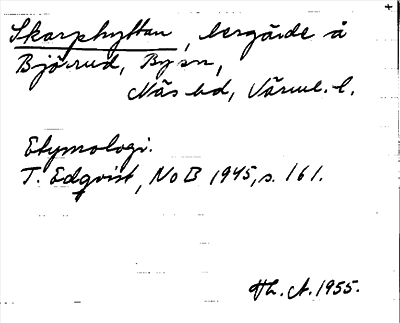 Skarphyttan, bergåide å
Björrud, By sn,
Näs hd, Värml. l.
Etymologi.
T. Edqvist, NoB 1945, s. 161.
Hh. A. 1955.